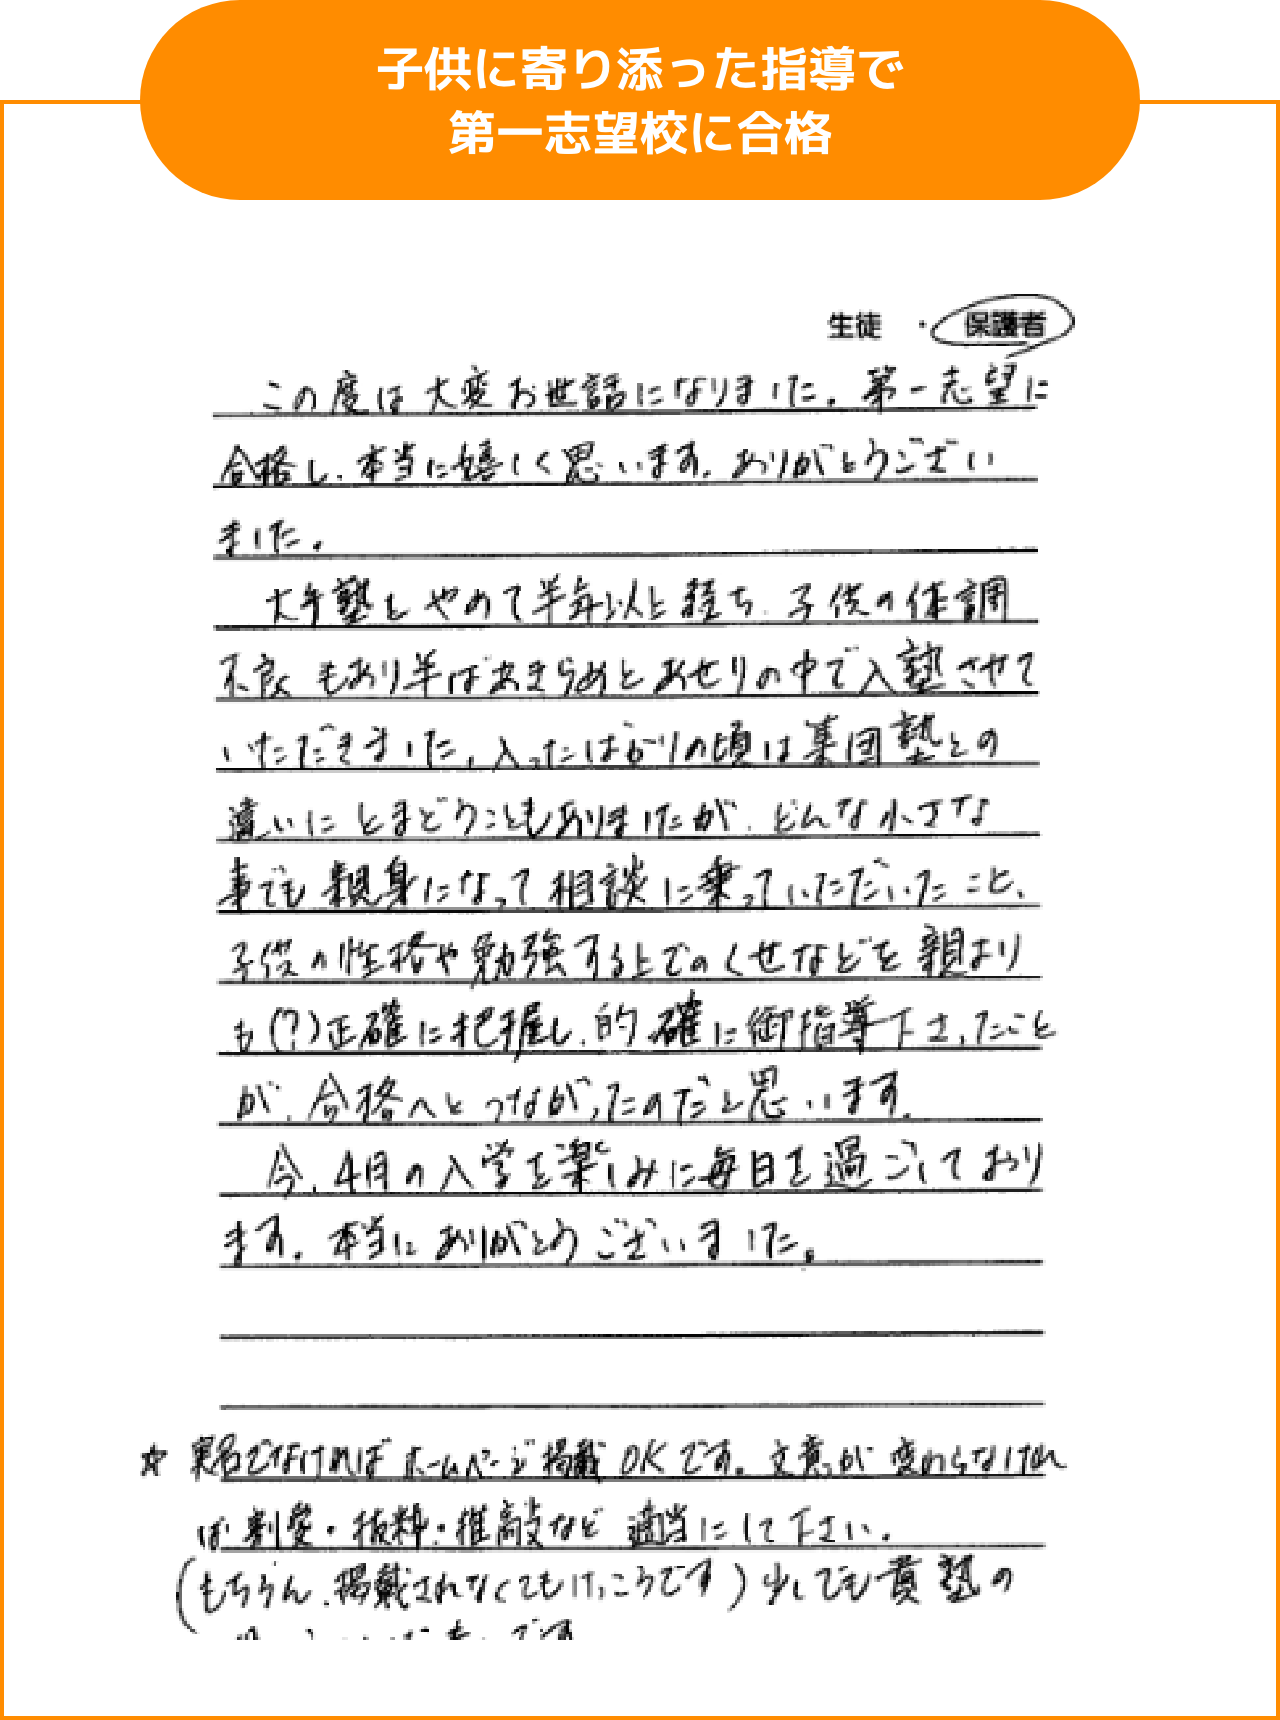 子供に寄り添った指導で
第一志望校に合格
生徒 ・ 保護者
この度は大変お世話になりました。第一志望に
合格し、本当に嬉しく思います。ありがとうござい
ました。
大手塾をやめて半年以上経ち、子供の体調
不良もあり半ばあきらめとあせりの中で入塾させて
いただきました。入ったばかりの頃は集団塾との
違いにとまどうこともありましたが、どんな小さな
事でも親身になって相談に乗っていただいたこと、
子供の性格や勉強する上でのくせなどを親より
も(?)正確に把握し、的確に御指導下さったこと
が、合格へとつながったのだと思います。
今、4月の入学を楽しみに毎日を過ごしており
ます。本当にありがとうございました。
☆ 実名でなければホームページ掲載OKです。文意が変わらなけれ
ば割愛・抜粋・推敲など適当にして下さい。
(もちろん、掲載されなくてもけっこうです)少しでも貴塾の